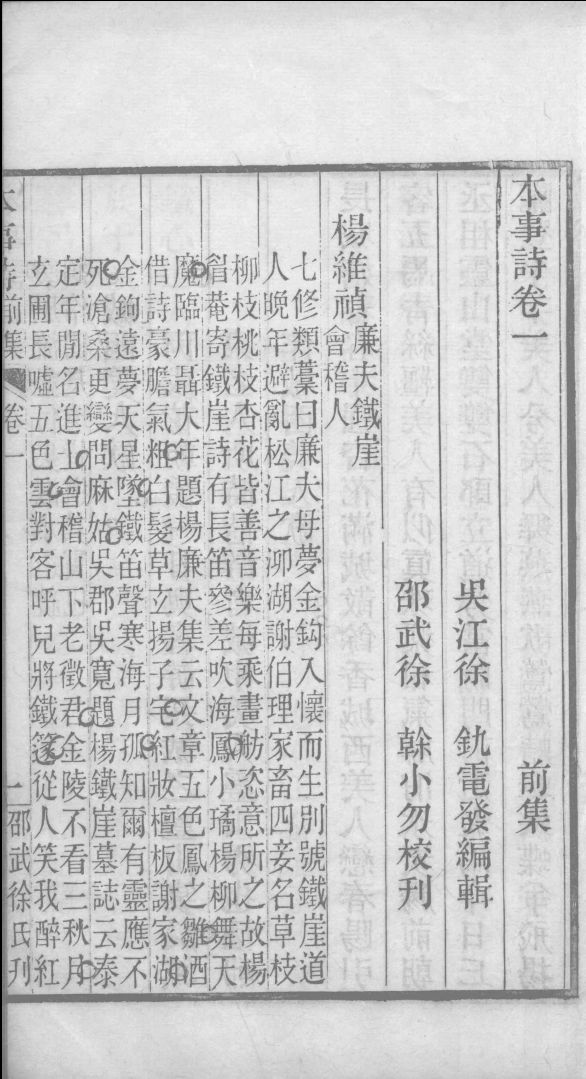 本事詩卷一
前集
吳江徐釚電發編輯
邵武徐榦小勿校刊
楊維禎
廉夫鐵崖
會稽人
七修類藁曰廉夫母夢金鈎入懷而生別號鐵崖道
人晚年避亂松江之泖湖謝伯理家畜四妾名草枝
柳枝桃枝杏花皆善音樂每乘畫舫恣意所之故楊
眉菴寄鐵崖詩有長笛參差吹海鳳小璚楊柳舞天
魔臨川聶大年題楊廉夫集云文章五色鳳之雛酒
借詩豪膽氣粗白髮草玄揚子宅紅妝檀板謝家湖
金鉤遠夢天星墜鐵笛聲寒海月孤知爾有靈應不
死滄桑更變問麻姑吳郡吳寬題楊鐵崖墓誌云泰
定年間名進士會稽山下老徵君金陵不看三秋月
玄圃長噓五色雲對客呼兒將鐵篴從人笑我醉紅
本事詩前集
卷一
一
邵武徐氏刊